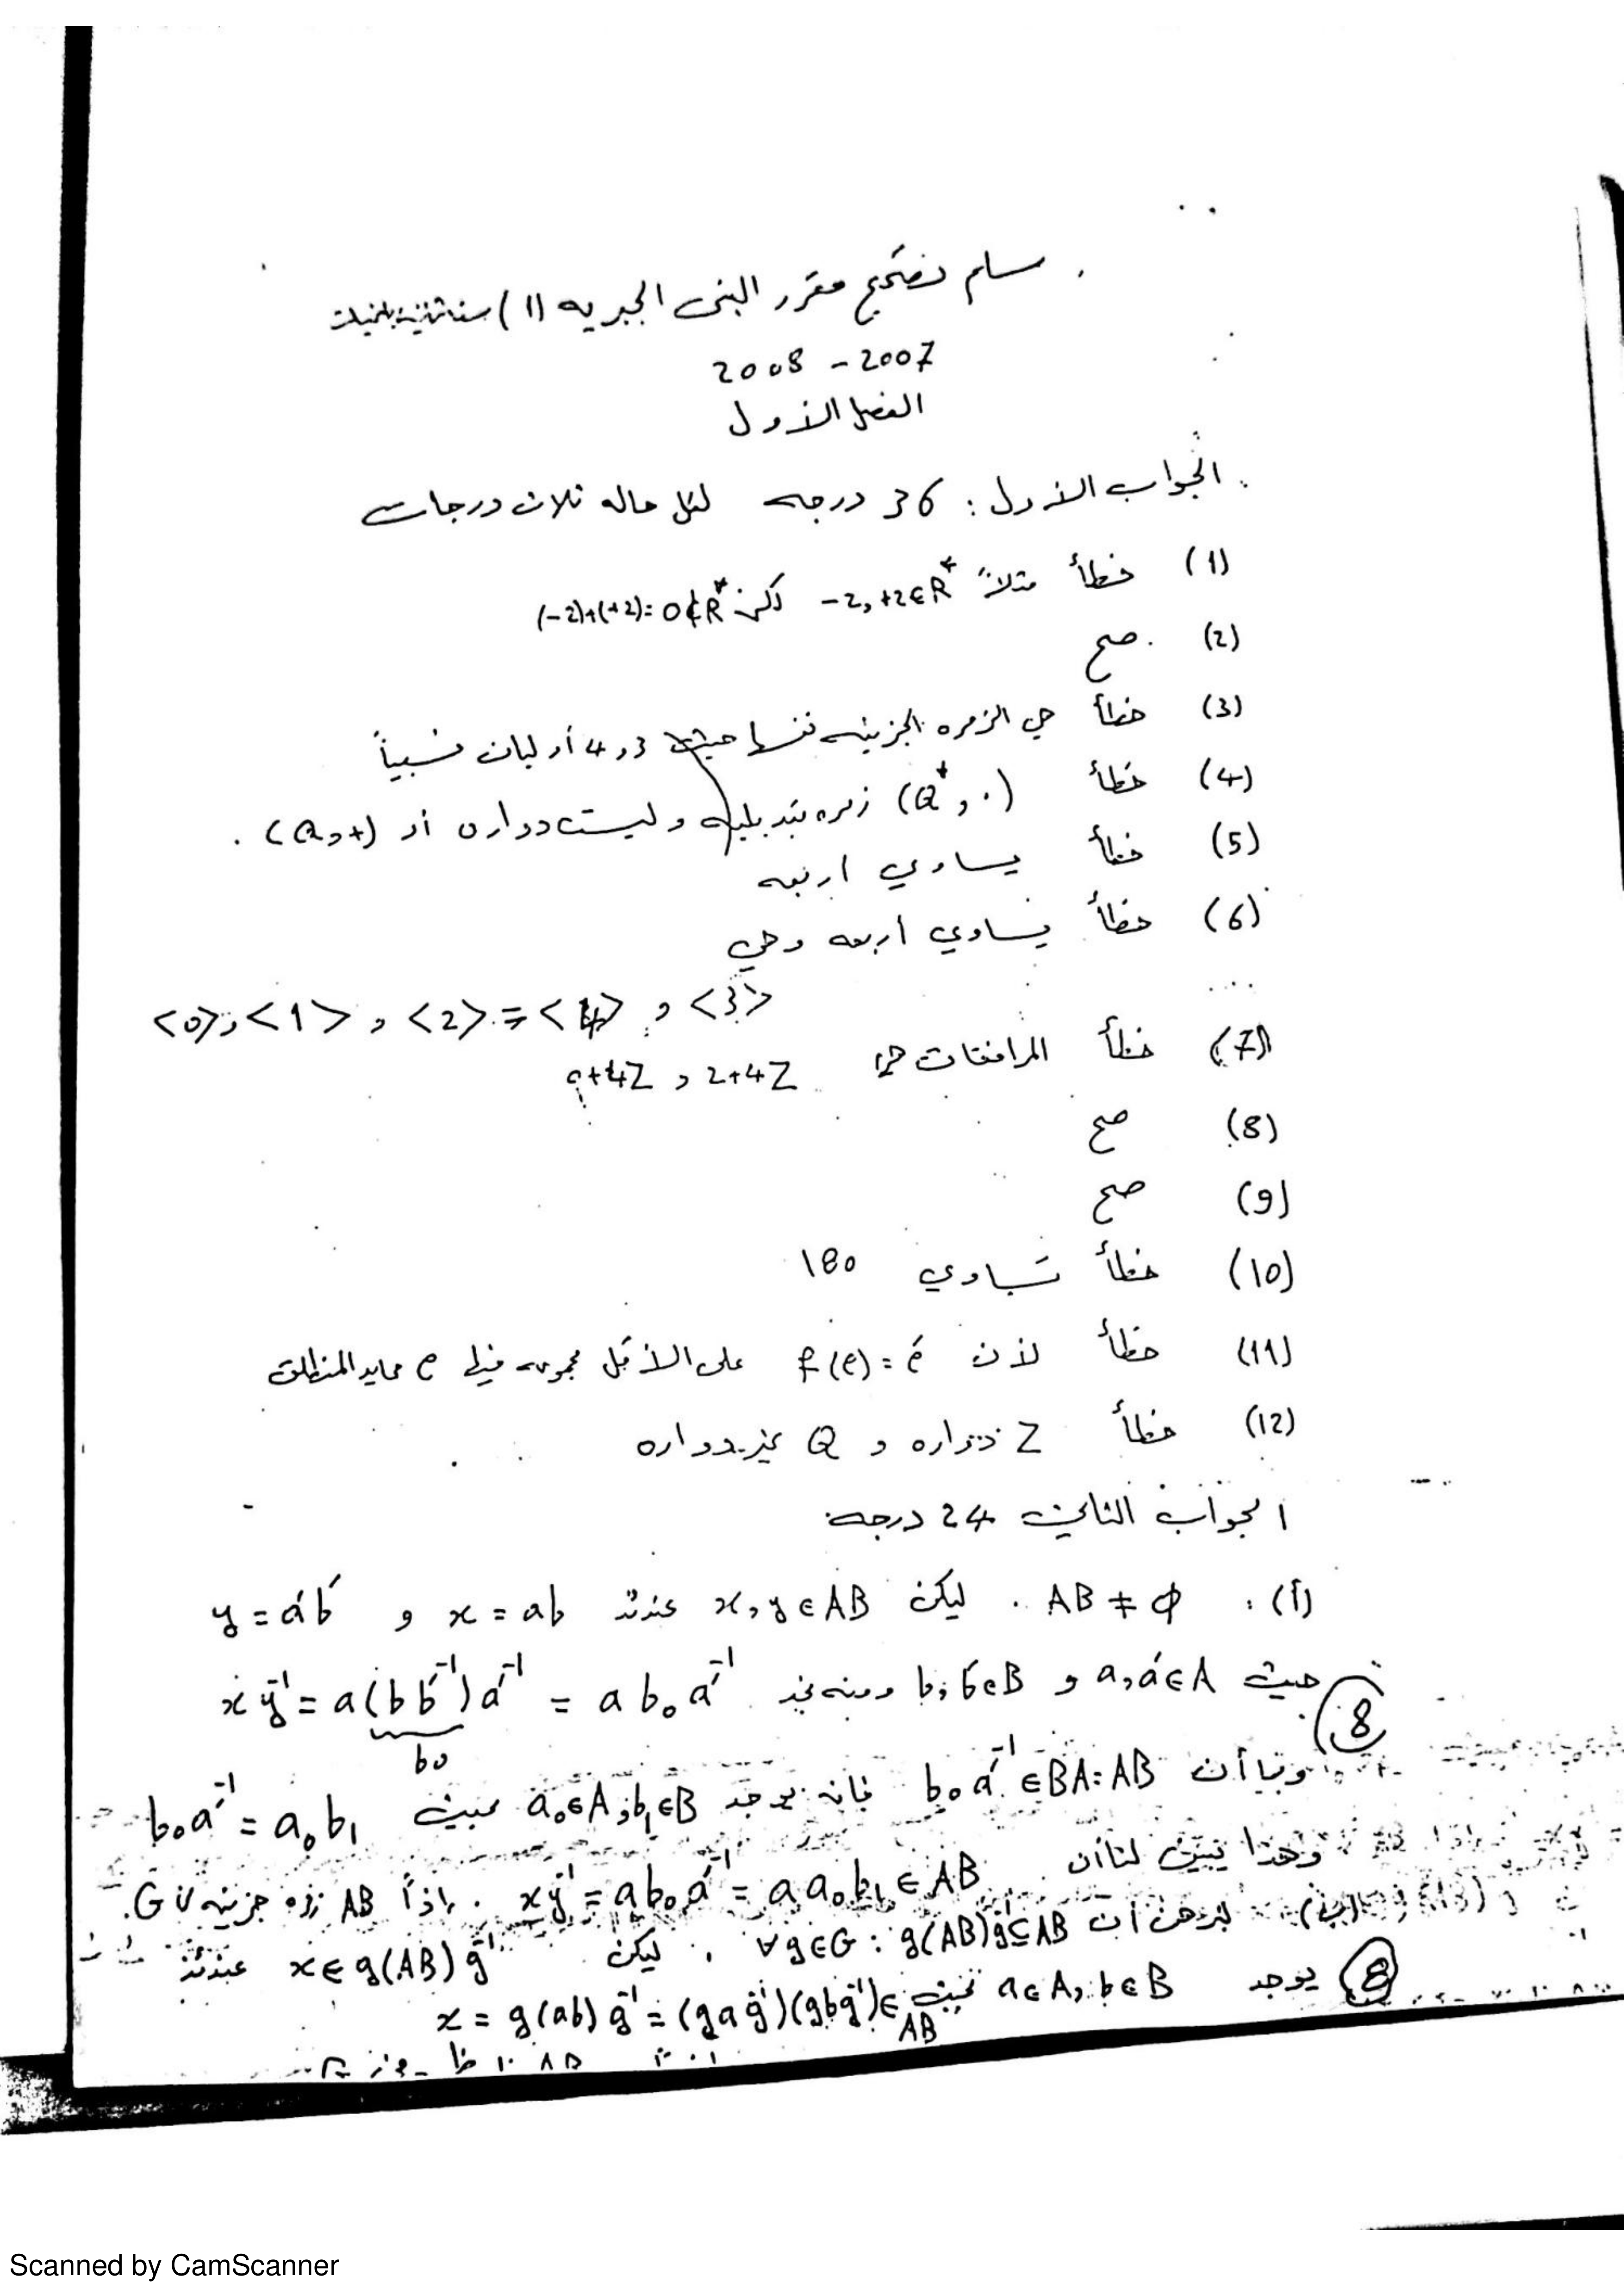 سلم تصحيح مقرر البنى الجبرية (1) سنة ثانية
2007 - 2008
الفصل الأول
الجواب الأول : 36 درجه لكل حاله ثلاث درجات
(1) خطأ مثلاً -2, +2 ∈ R* لكن (-2)+(+2) = 0 ∉ R*
(2) صح
(3) خطأ هي الزمره الجزئيه نفسها حيث 3 و 4 أوليان نسبياً
(4) خطأ (Q*, ·) زمره تبديليه وليست دواره أو (Q,+) .
(5) خطأ يساوي اربعه
(6) خطأ يساوي أربعه وهي
<0>, <1> , <2> = <4> , <3>
(7) خطأ المرافقات هي 2+4Z و 0+4Z
(8) صح
(9) صح
(10) خطأ تساوي 180
(11) خطأ لأن f(e) = é على الأقل مجموعه فيها e محايد المنطلق
(12) خطأ Z دواره و Q غير دواره
الجواب الثاني 24 درجه
(أ) : AB ≠ φ . ليكن x, y ∈ AB عندئذ x = ab و y = áb́
حيث a, á ∈ A و b, b́ ∈ B ومنه نجد x y⁻¹ = a(b b́⁻¹) á⁻¹ = a b₀ á⁻¹
b₀
8
وبما أن b₀ á⁻¹ ∈ BA = AB فإنه يوجد a₀ ∈ A, b₁ ∈ B بحيث b₀ á⁻¹ = a₀ b₁
وهذا يبين لنا أن x y⁻¹ = a b₀ á⁻¹ = a a₀ b₁ ∈ AB . إذاً AB زمره جزئيه من G.
(ب) لنبرهن أن ∀ g ∈ G : g(AB)g⁻¹ ⊆ AB . ليكن x ∈ g(AB) g⁻¹ عندئذ
8 يوجد a ∈ A, b ∈ B بحيث x = g(ab) g⁻¹ = (g a g⁻¹)(g b g⁻¹) ∈ AB
Scanned by CamScanner